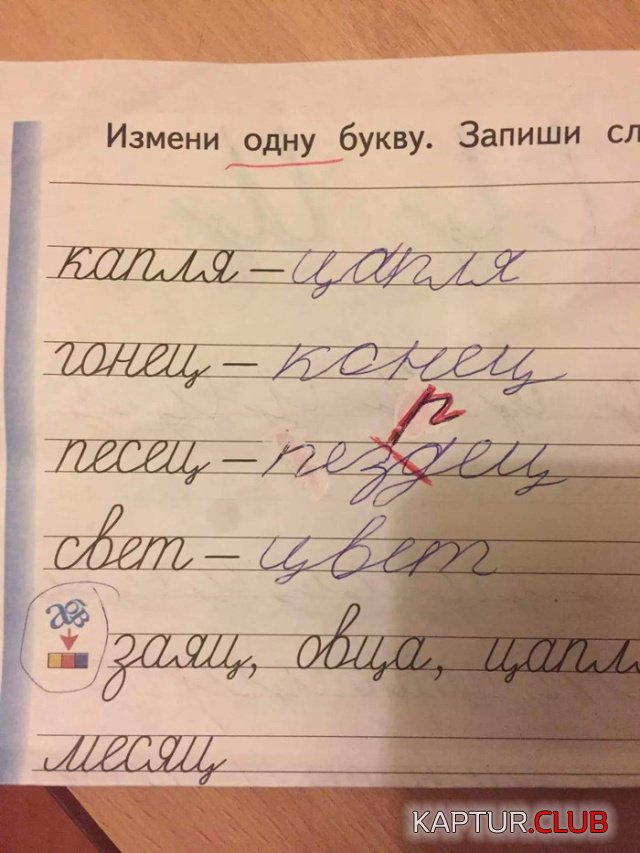 Измени одну букву. Запиши сл
капля – цапля
гонец – конец
р
песец – пездец
свет – цвет
заяц, овца, цапл
месяц
KAPTUR.CLUB